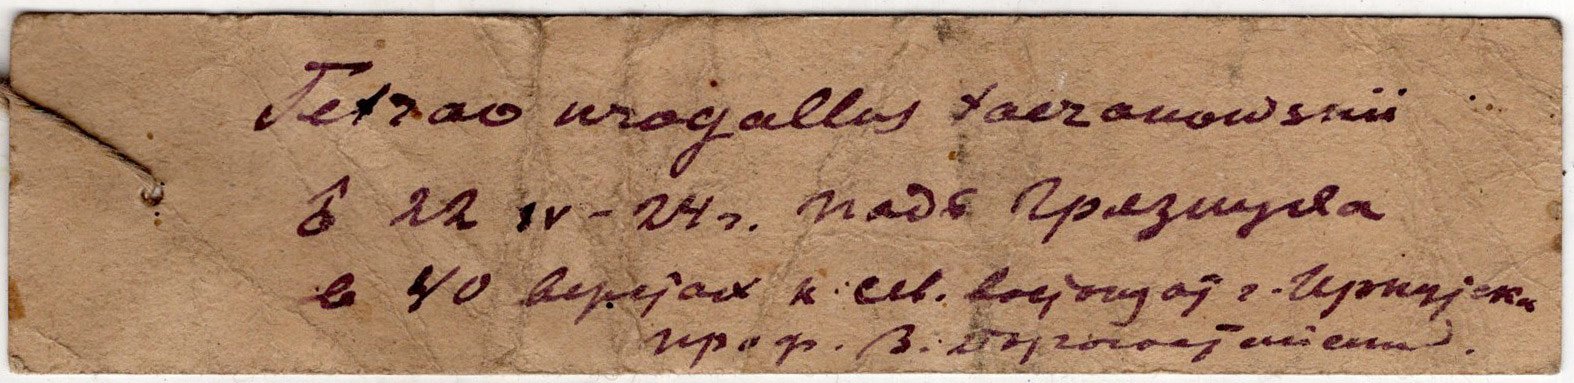 Tetrao urogallus taczanowskii
♂ 22 IV-24 г. падь Грязнуха
в 40 верстах к сев. востоку от г. Иркутска
проф. В. Дорогостайский.